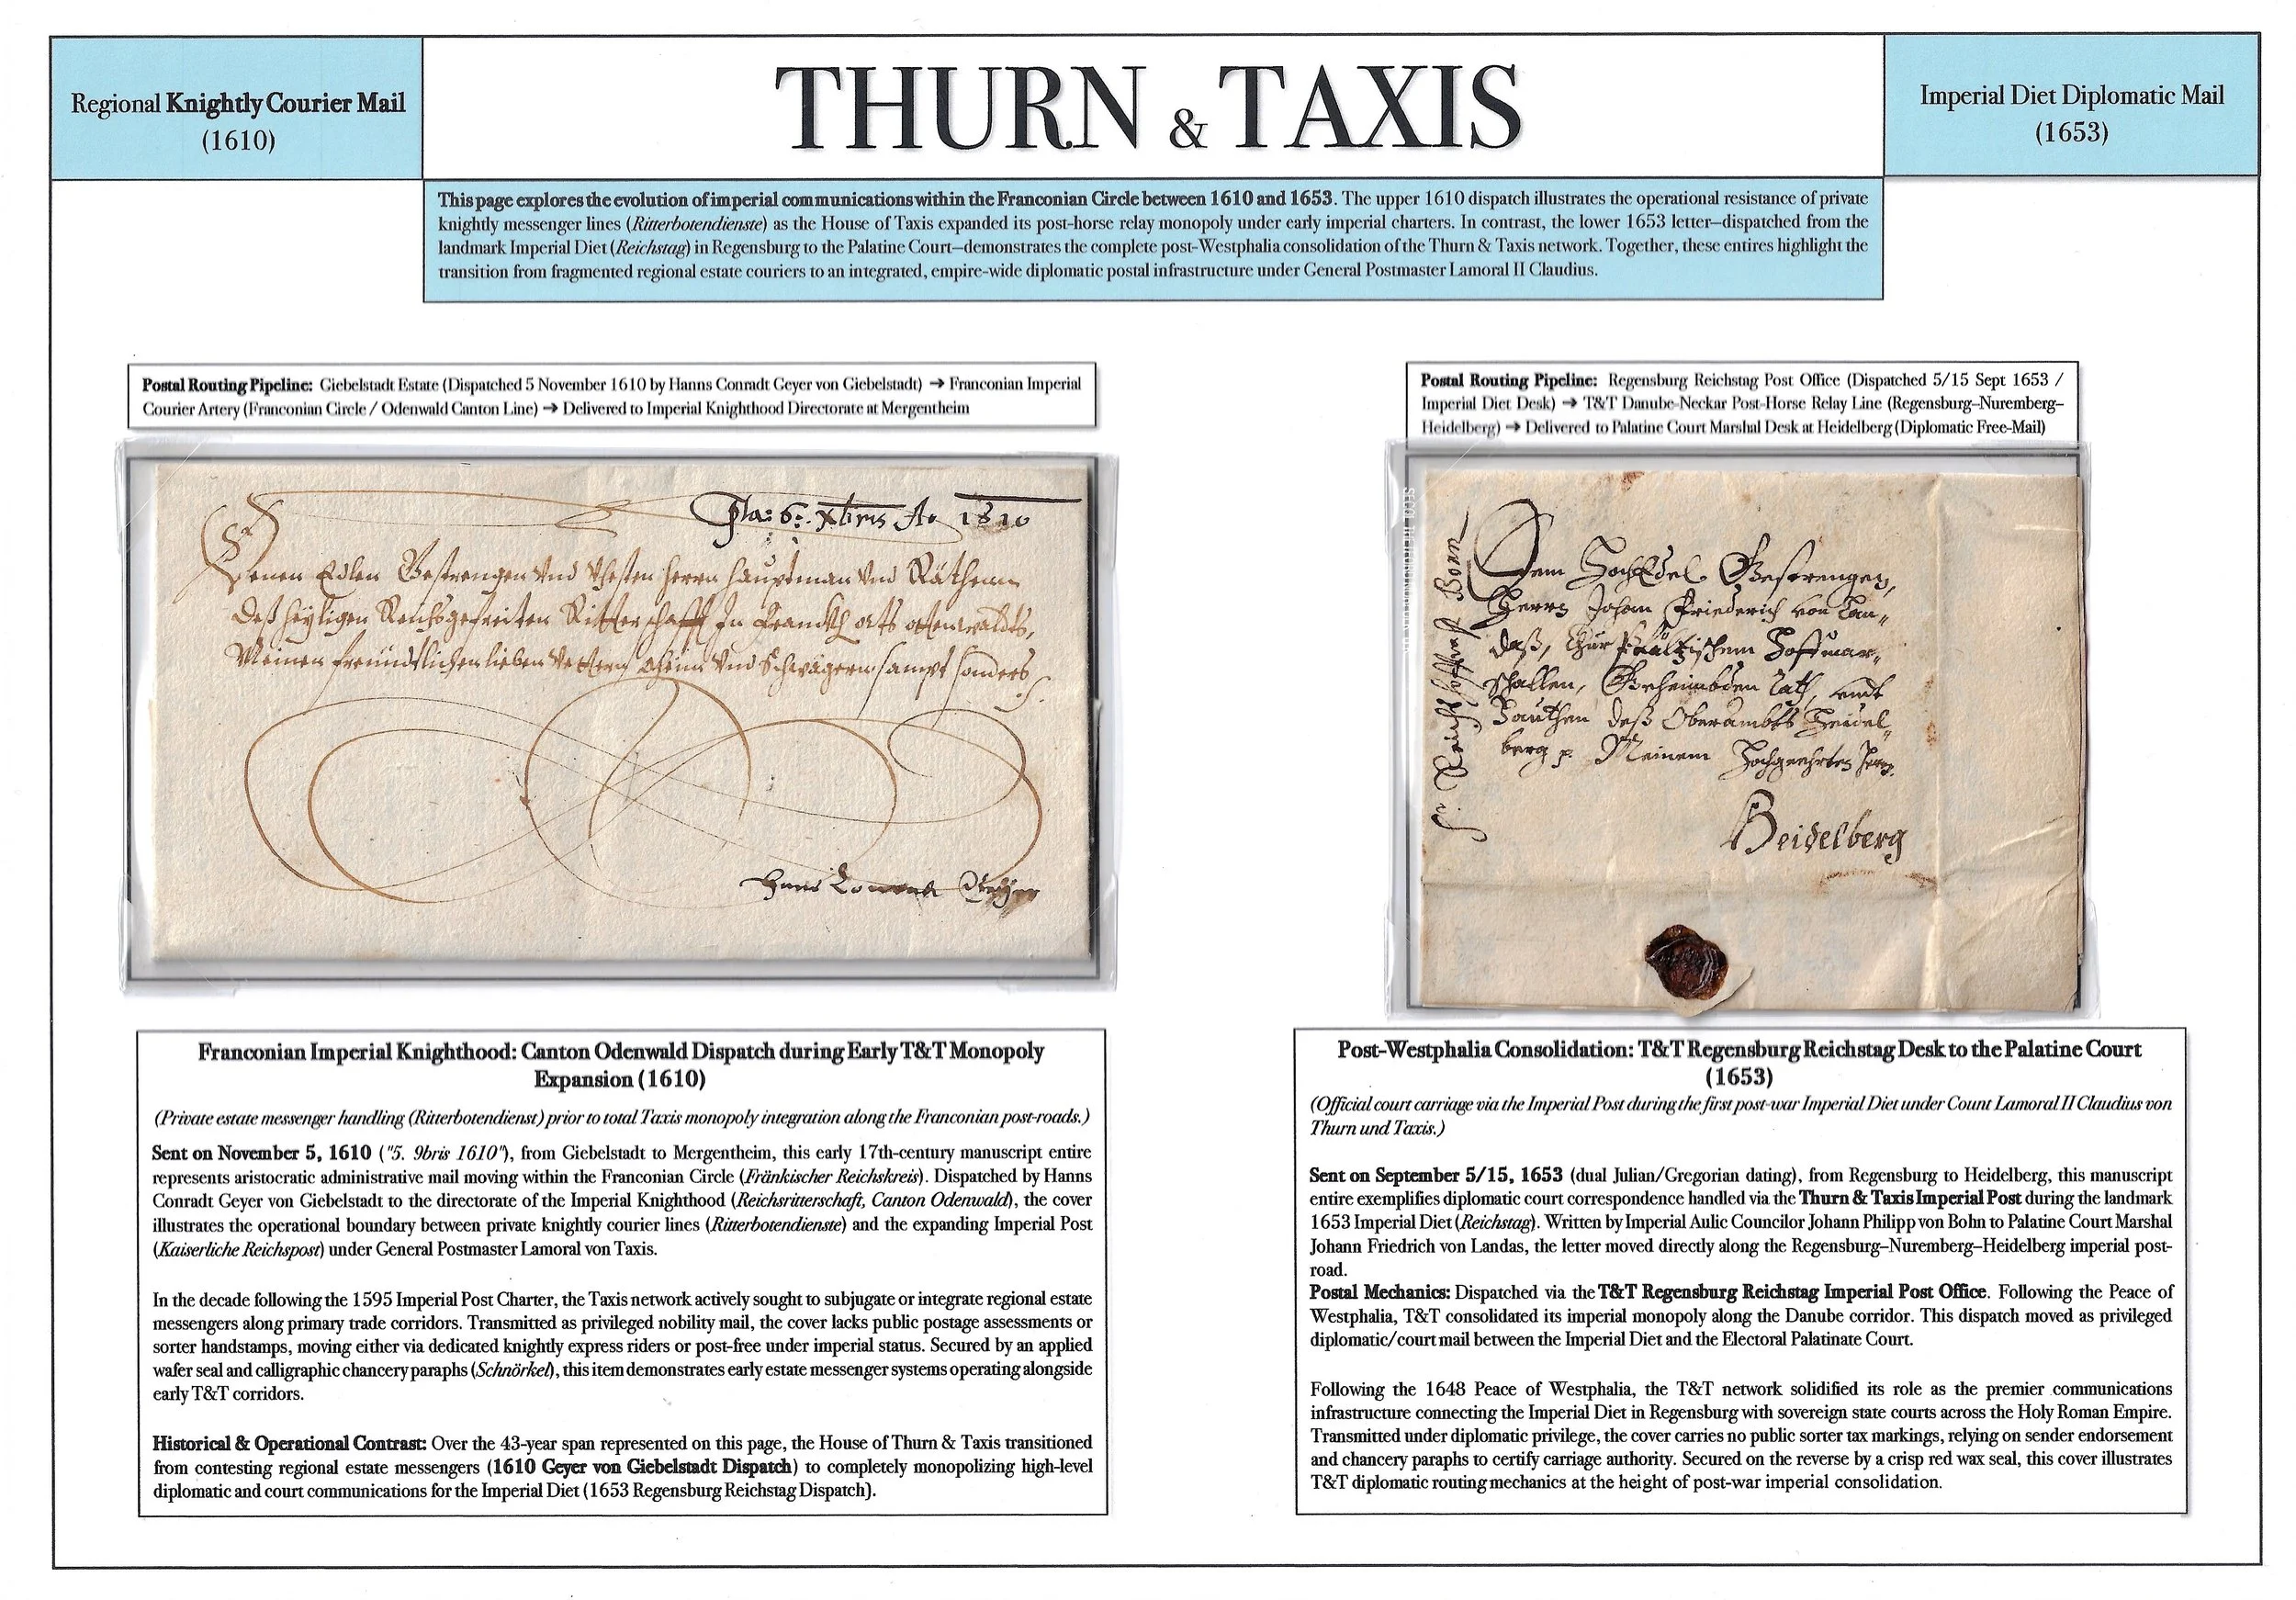 Regional Knightly Courier Mail
(1610)
THURN & TAXIS
Imperial Diet Diplomatic Mail
(1653)
This page explores the evolution of imperial communications within the Franconian Circle between 1610 and 1653. The upper 1610 dispatch illustrates the operational resistance of private
knightly messenger lines (Ritterbotendienste) as the House of Taxis expanded its post-horse relay monopoly under early imperial charters. In contrast, the lower 1653 letter—dispatched from the
landmark Imperial Diet (Reichstag) in Regensburg to the Palatine Court—demonstrates the complete post-Westphalia consolidation of the Thurn & Taxis network. Together, these entires highlight the
transition from fragmented regional estate couriers to an integrated, empire-wide diplomatic postal infrastructure under General Postmaster Lamoral II Claudius.
Postal Routing Pipeline: Giebelstadt Estate (Dispatched 5 November 1610 by Hanns Conradt Geyer von Giebelstadt) → Franconian Imperial
Courier Artery (Franconian Circle / Odenwald Canton Line) → Delivered to Imperial Knighthood Directorate at Mergentheim
6. Xbris Ao 1610
Denen Edlen Gestrengen Vnd Vhesten Herrn Hauptman Vnd Räthenn
Deß heyligen Reichsgefreiten Ritterschafft In orts ottenwaldts,
Meinen freündtlichen lieben Vettern Oheim Vnd Schwägern sampt sonders
Hans Conradt Geyer
Franconian Imperial Knighthood: Canton Odenwald Dispatch during Early T&T Monopoly
Expansion (1610)
(Private estate messenger handling (Ritterbotendienst) prior to total Taxis monopoly integration along the Franconian post-roads.)
Sent on November 5, 1610 ("5. 9bris 1610"), from Giebelstadt to Mergentheim, this early 17th-century manuscript entire
represents aristocratic administrative mail moving within the Franconian Circle (Fränkischer Reichskreis). Dispatched by Hanns
Conradt Geyer von Giebelstadt to the directorate of the Imperial Knighthood (Reichsritterschaft, Canton Odenwald), the cover
illustrates the operational boundary between private knightly courier lines (Ritterbotendienste) and the expanding Imperial Post
(Kaiserliche Reichspost) under General Postmaster Lamoral von Taxis.
In the decade following the 1595 Imperial Post Charter, the Taxis network actively sought to subjugate or integrate regional estate
messengers along primary trade corridors. Transmitted as privileged nobility mail, the cover lacks public postage assessments or
sorter handstamps, moving either via dedicated knightly express riders or post-free under imperial status. Secured by an applied
wafer seal and calligraphic chancery paraphs (Schnörkel), this item demonstrates early estate messenger systems operating alongside
early T&T corridors.
Historical & Operational Contrast: Over the 43-year span represented on this page, the House of Thurn & Taxis transitioned
from contesting regional estate messengers (1610 Geyer von Giebelstadt Dispatch) to completely monopolizing high-level
diplomatic and court communications for the Imperial Diet (1653 Regensburg Reichstag Dispatch).
Postal Routing Pipeline: Regensburg Reichstag Post Office (Dispatched 5/15 Sept 1653 /
Imperial Diet Desk) → T&T Danube-Neckar Post-Horse Relay Line (Regensburg–Nuremberg–
Heidelberg) → Delivered to Palatine Court Marshal Desk at Heidelberg (Diplomatic Free-Mail)
Dem HochEdel Gestrengen,
Herrn Johan Friederich von Lan-
daß, Chur Pfältzischem Hoffmar-
schallen, Geheimbden Rath, vndt
Fauthen deß Oberambts Heidel-
berg p. Meinem Hochgeehrten Herrn.
Heidelberg
Post-Westphalia Consolidation: T&T Regensburg Reichstag Desk to the Palatine Court
(1653)
(Official court carriage via the Imperial Post during the first post-war Imperial Diet under Count Lamoral II Claudius von
Thurn und Taxis.)
Sent on September 5/15, 1653 (dual Julian/Gregorian dating), from Regensburg to Heidelberg, this manuscript
entire exemplifies diplomatic court correspondence handled via the Thurn & Taxis Imperial Post during the landmark
1653 Imperial Diet (Reichstag). Written by Imperial Aulic Councilor Johann Philipp von Bohn to Palatine Court Marshal
Johann Friedrich von Landas, the letter moved directly along the Regensburg–Nuremberg–Heidelberg imperial post-
road.
Postal Mechanics: Dispatched via the T&T Regensburg Reichstag Imperial Post Office. Following the Peace of
Westphalia, T&T consolidated its imperial monopoly along the Danube corridor. This dispatch moved as privileged
diplomatic/court mail between the Imperial Diet and the Electoral Palatinate Court.
Following the 1648 Peace of Westphalia, the T&T network solidified its role as the premier communications
infrastructure connecting the Imperial Diet in Regensburg with sovereign state courts across the Holy Roman Empire.
Transmitted under diplomatic privilege, the cover carries no public sorter tax markings, relying on sender endorsement
and chancery paraphs to certify carriage authority. Secured on the reverse by a crisp red wax seal, this cover illustrates
T&T diplomatic routing mechanics at the height of post-war imperial consolidation.